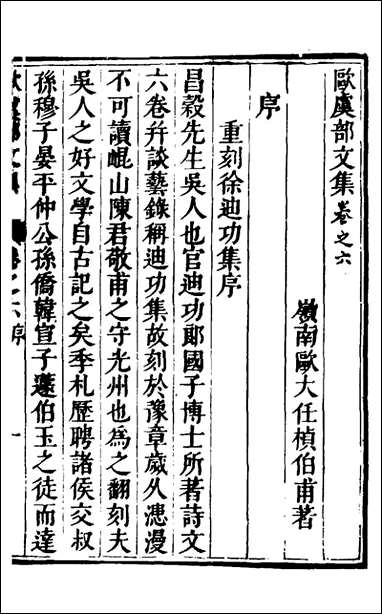 歐虞部文集卷之六
嶺南歐大任楨伯甫著
序
重刻徐迪功集序
昌榖先生吳人也官迪功郎國子博士所著詩文
六卷幷談藝錄稱迪功集故刻於豫章歲久漶漫
不可讀崐山陳君敬甫之守光州也為之翻刻夫
吳人之好文學自古記之矣季札歷聘諸侯交叔
孫穆子晏平仲公孫僑韓宣子蘧伯玉之徒而達
卷之六序
一